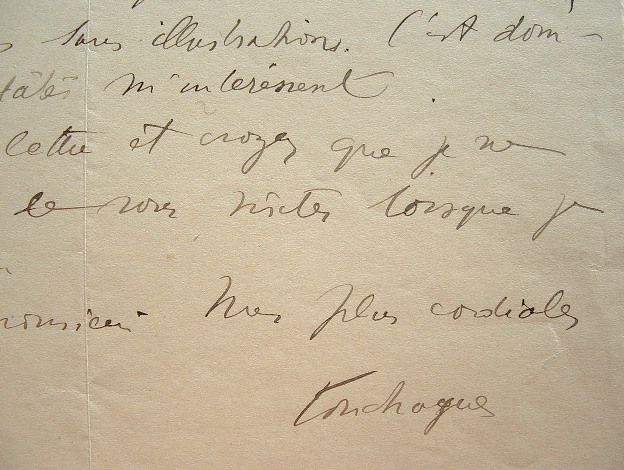 sans illustrations. C'est dom-
m'intéressent
lettre et croyez que je ne
de vous visiter lorsque je
monsieur Mes plus cordiales
Touchagues